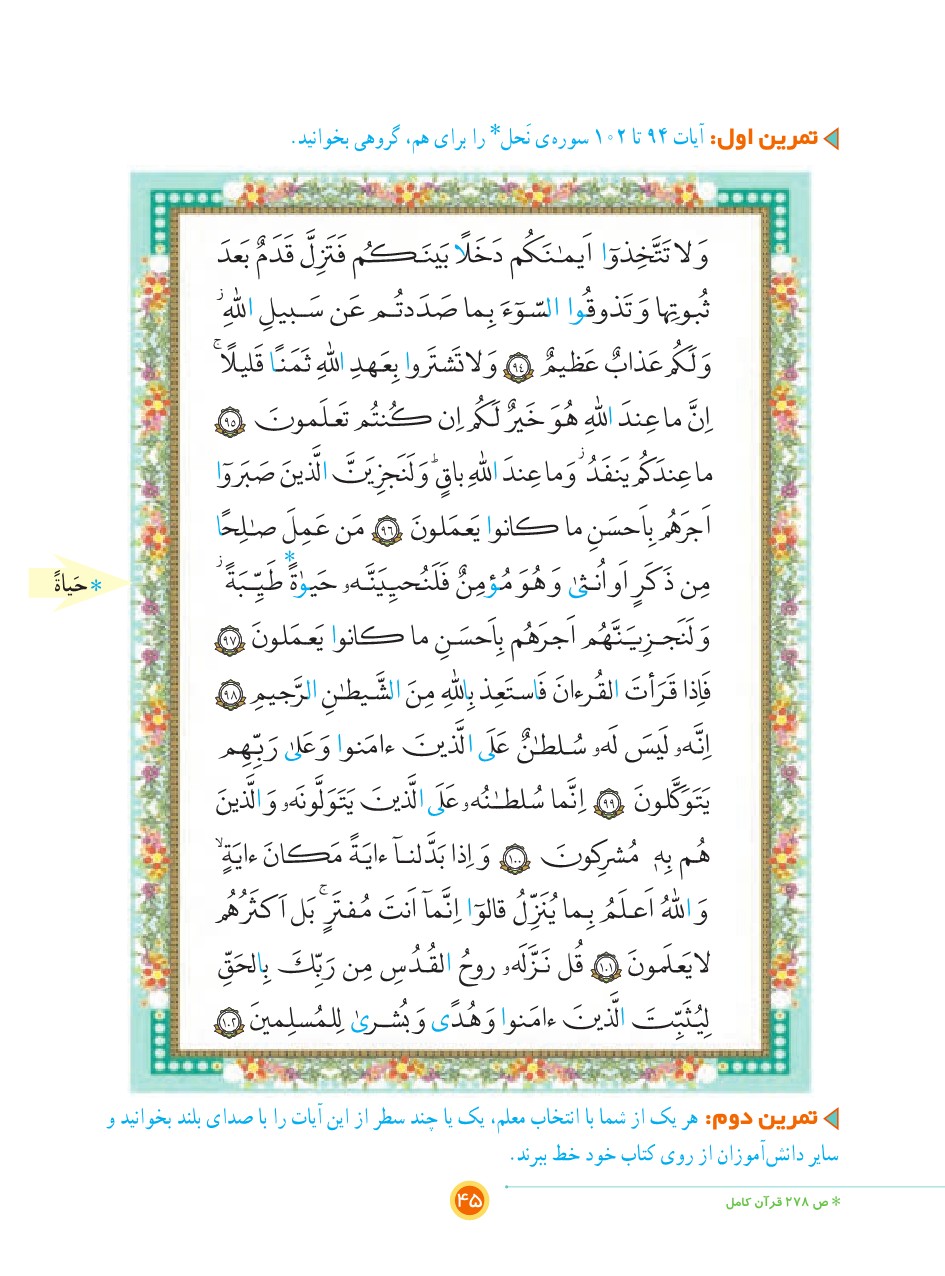 تمرین اول: آیات ۹۴ تا ۱۰۲ سوره‌ی نَحل* را برای هم، گروهی بخوانید.
وَ لا تَتَّخِذوٓا اَیمـٰنَکُم دَخَلًا بَینَـکُـم فَتَزِلَّ قَدَمٌ بَعدَ
ثُبوتِها وَ تَذوقُوا السّوٓءَ بِما صَدَدتُـم عَن سَـبیلِ اللّٰهِ ۖ
وَ لَکُم عَذابٌ عَظیمٌ ﴿٩٤﴾ وَ لا تَشتَروا بِعَهدِ اللّٰهِ ثَمَنًا قَلیلًا ۚ
اِنَّ ما عِندَ اللّٰهِ هُوَ خَیرٌ لَکُم اِن کُنتُم تَعلَمونَ ﴿٩٥﴾
ما عِندَکُم یَنفَدُ ۖ وَ ما عِندَ اللّٰهِ باقٍ ۗ وَ لَنَجزِیَنَّ الَّذینَ صَبَروٓا
اَجرَهُم بِاَحسَنِ ما کانوا یَعمَلونَ ﴿٩٦﴾ مَن عَمِلَ صـٰلِحًا
مِن ذَکَرٍ اَو اُنثیٰ وَ هُوَ مُؤمِنٌ فَلَنُحیِیَنَّه‌و حَیوٰةً* طَیِّبَةً ۖ
* حَیاةً
وَ لَنَجزِیَنَّهُم اَجرَهُم بِاَحسَنِ ما کانوا یَعمَلونَ ﴿٩٧﴾
فَاِذا قَرَأتَ القُرءانَ فَاستَعِذ بِاللّٰهِ مِنَ الشَّیطـٰنِ الرَّجیمِ ﴿٩٨﴾
اِنَّه‌و لَیسَ لَه‌و سُلطـٰنٌ عَلَی الَّذینَ ءامَنوا وَ عَلیٰ رَبِّهِم
یَتَوَکَّلونَ ﴿٩٩﴾ اِنَّما سُلطـٰنُه‌و عَلَی الَّذینَ یَتَوَلَّونَه‌و وَ الَّذینَ
هُم بِه۪ مُشرِکونَ ﴿١٠٠﴾ وَ اِذا بَدَّلنـآ ءایَةً مَکانَ ءایَةٍ ۙ
وَ اللّٰهُ اَعلَمُ بِما یُنَزِّلُ قالوٓا اِنَّمآ اَنتَ مُفتَرٍ ۚ بَل اَکثَرُهُم
لا یَعلَمونَ ﴿١٠١﴾ قُل نَزَّلَه‌و روحُ القُدُسِ مِن رَبِّکَ بِالحَقِّ
لِیُثَبِّتَ الَّذینَ ءامَنوا وَ هُدًی وَ بُشریٰ لِلمُسلِمینَ ﴿١٠٢﴾
تمرین دوم: هر یک از شما با انتخاب معلم، یک یا چند سطر از این آیات را با صدای بلند بخوانید و
سایر دانش‌آموزان از روی کتاب خود خط ببرند.
* ص ۲۷۸ قرآن کامل
۴۵